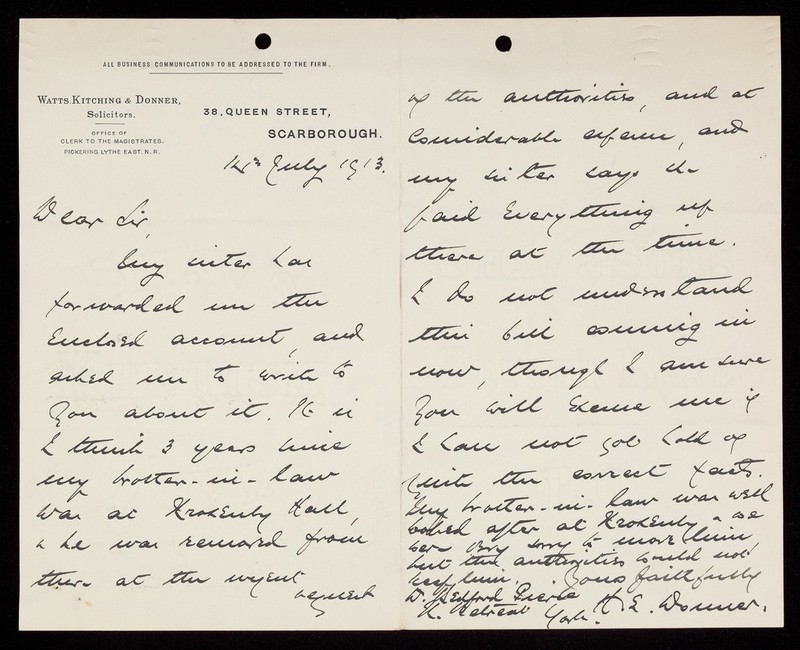 ALL BUSINESS COMMUNICATIONS TO BE ADDRESSED TO THE FIRM.
WATTS, KITCHING & DONNER,
Solicitors.
OFFICE OF
CLERK TO THE MAGISTRATES.
PICKERING LYTHE EAST. N. R.
38, QUEEN STREET,
SCARBOROUGH.
July 1913.
Dear Sir,
My sister has
forwarded me the
enclosed account, and
asked me to write to
you about it. It is
I think 3 years since
my brother-in-law
was at Hall,
& he was removed from
there at the urgent
request
of the authorities, and at
considerable expense, and
my sister says she
paid everything up
there at the time.
I do not understand
this bill coming in
now, though I am sure
you will excuse me if
I have not got hold of
quite the correct facts.
My brother-in-law was well
looked after at & we
were very sorry to move him,
but the authorities would not
keep him. Yours faithfully
H. E. Donner.
Dr. Bedford Pierce
The Retreat York.